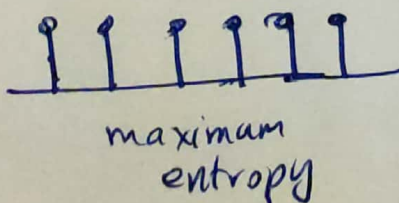 maximum
entropy